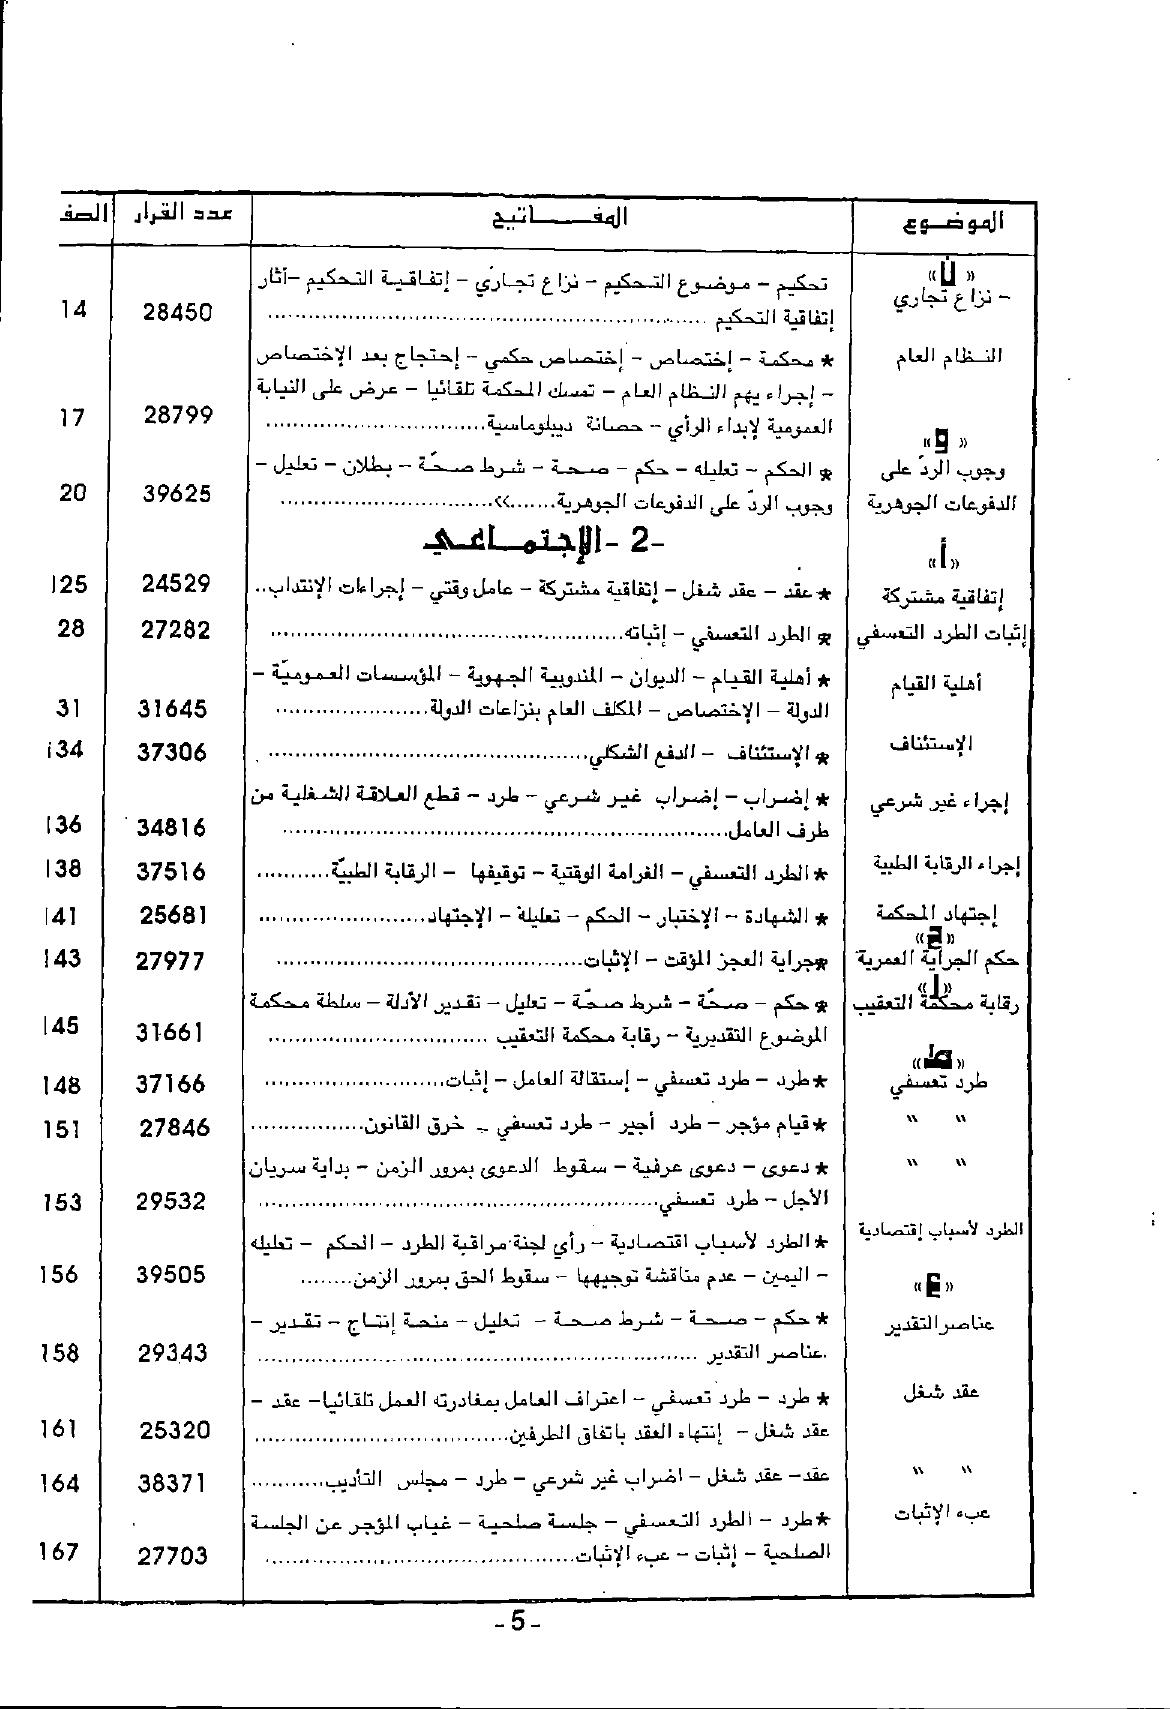 الموضـوع المفـــاتيح عدد القرار الصف
« ن »
- نزاع تجاري تحكيم – موضوع التحكيم – نزاع تجاري – إتفاقية التحكيم –آثار
إتفاقية التحكيم ................ 28450 14
النظام العام * محكمة – إختصاص – إختصاص حكمي – إحتجاج بعد الإختصاص
– إجراء يهم النظام العام – تمسك المحكمة تلقائيا – عرض على النيابة
العمومية لإبداء الرأي – حصانة ديبلوماسية................ 28799 17
« و »
وجوب الردّ على * الحكم – تعليله – حكم – صحة – شرط صحّة – بطلان – تعليل –
الدفوعات الجوهرية وجوب الردّ على الدفوعات الجوهرية................ 39625 20
-2 -الإجتمـاعـي
« أ »
إتفاقية مشتركة * عقد – عقد شغل – إتفاقية مشتركة – عامل وقتي – إجراءات الإنتداب.. 24529 125
إثبات الطرد التعسفي * الطرد التعسفي – إثباته................ 27282 28
أهلية القيام * أهلية القيام – الديوان – المندوبية الجهوية – المؤسسات العموميّة –
الدولة – الإختصاص – المكلف العام بنزاعات الدولة................ 31645 31
الإستئناف * الإستئناف – الدفع الشكلي................ 37306 134
إجراء غير شرعي * إضراب – إضراب غير شرعي – طرد – قطع العلاقة الشغلية من
طرف العامل................ 34816 136
إجراء الرقابة الطبية * الطرد التعسفي – الغرامة الوقتية – توقيفها – الرقابة الطبيّة........... 37516 138
إجتهاد المحكمة * الشهادة – الإختبار – الحكم – تعليله – الإجتهاد................ 25681 141
« ح »
حكم الجراية العمرية *جراية العجز المؤقت – الإثبات................ 27977 143
« ر »
رقابة محكمة التعقيب * حكم – صحّة – شرط صحّة – تعليل – تقدير الأدلة – سلطة محكمة
الموضوع التقديرية – رقابة محكمة التعقيب ................ 31661 145
« ط »
طرد تعسفي *طرد – طرد تعسفي – إستقالة العامل – إثبات................ 37166 148
" " *قيام مؤجر – طرد أجير – طرد تعسفي – خرق القانون................ 27846 151
" " * دعوى – دعوى عرفية – سقوط الدعوى بمرور الزمن – بداية سريان
الأجل – طرد تعسفي................ 29532 153
الطرد لأسباب إقتصادية *الطرد لأسباب اقتصادية – رأي لجنة مراقبة الطرد – الحكم – تعليله
– اليمين – عدم مناقشة توجيهها – سقوط الحق بمرور الزمن........ 39505 156
« ع »
عناصر التقدير * حكم – صحة – شرط صحة – تعليل – منحة إنتاج – تقدير –
عناصر التقدير ................ 29343 158
عقد شغل * طرد – طرد تعسفي – اعتراف العامل بمغادرته العمل تلقائيا– عقد –
عقد شغل – إنتهاء العقد باتفاق الطرفين................ 25320 161
" " عقد– عقد شغل – اضراب غير شرعي – طرد – مجلس التأديب........... 38371 164
عبء الإثبات *طرد – الطرد التعسفي – جلسة صلحية – غياب المؤجر عن الجلسة
الصلحية – إثبات – عبء الإثبات................ 27703 167
- 5 -